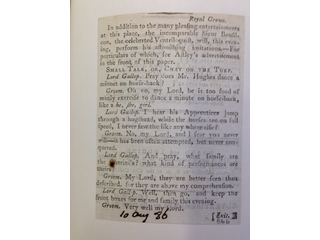 Royal Grove.
In addition to the many pleasing entertainements
at this place, the incomparable Sieur
the celebrated Ventriloquist, will, this even-
ing, perform his astonishing imitations.—For
particulars of which, see Astley's advertisement
in the front of this paper.
SMALL TALK, or, CHAT ON THE TURF.
Lord Gallop. Pray does Mr. Hughes dance a
minuet on horseback?
Groom. Oh no, my Lord, he is too fond of
manly exercise to dance a minuet on horseback,
like a
Lord Gallop. I hear his Apprentices jump
through a hogshead, while the horses are on full
speed, I never saw the like any where else?
Groom. No, my Lord, and I fear you never
will—it has been often attempted, but never
Lord Gallop. And pray, what family are
the what kind of performances are
theirs?
Groom. My Lord, they are better seen than
described, for they are above my comprehension.
Lord Gallop. Well, then go, and keep the
front boxes for me and family this evening.
Groom. Very well my Lord.
[Exit.
10 Aug 86